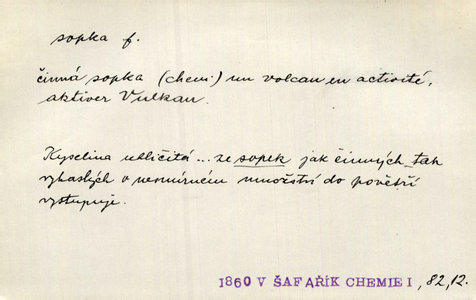 sopka f.
činná sopka (chem.) un volcan en activité,
aktiver Vulkan.
Kyselina uhličitá... ze sopek jak činných tak
vyhaslých v nesmírném množství do povětří
vystupuje.
1860 V ŠAFAŘÍK CHEMIE I, 82,12.